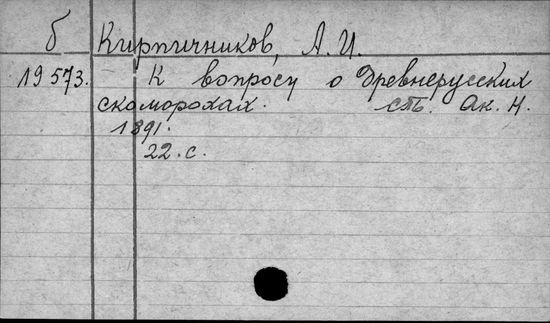 б Кирпичников, А. И.
19573. К вопросу о древнерусских
скоморохах. спб. Ак. Н.
1891.
22. с.